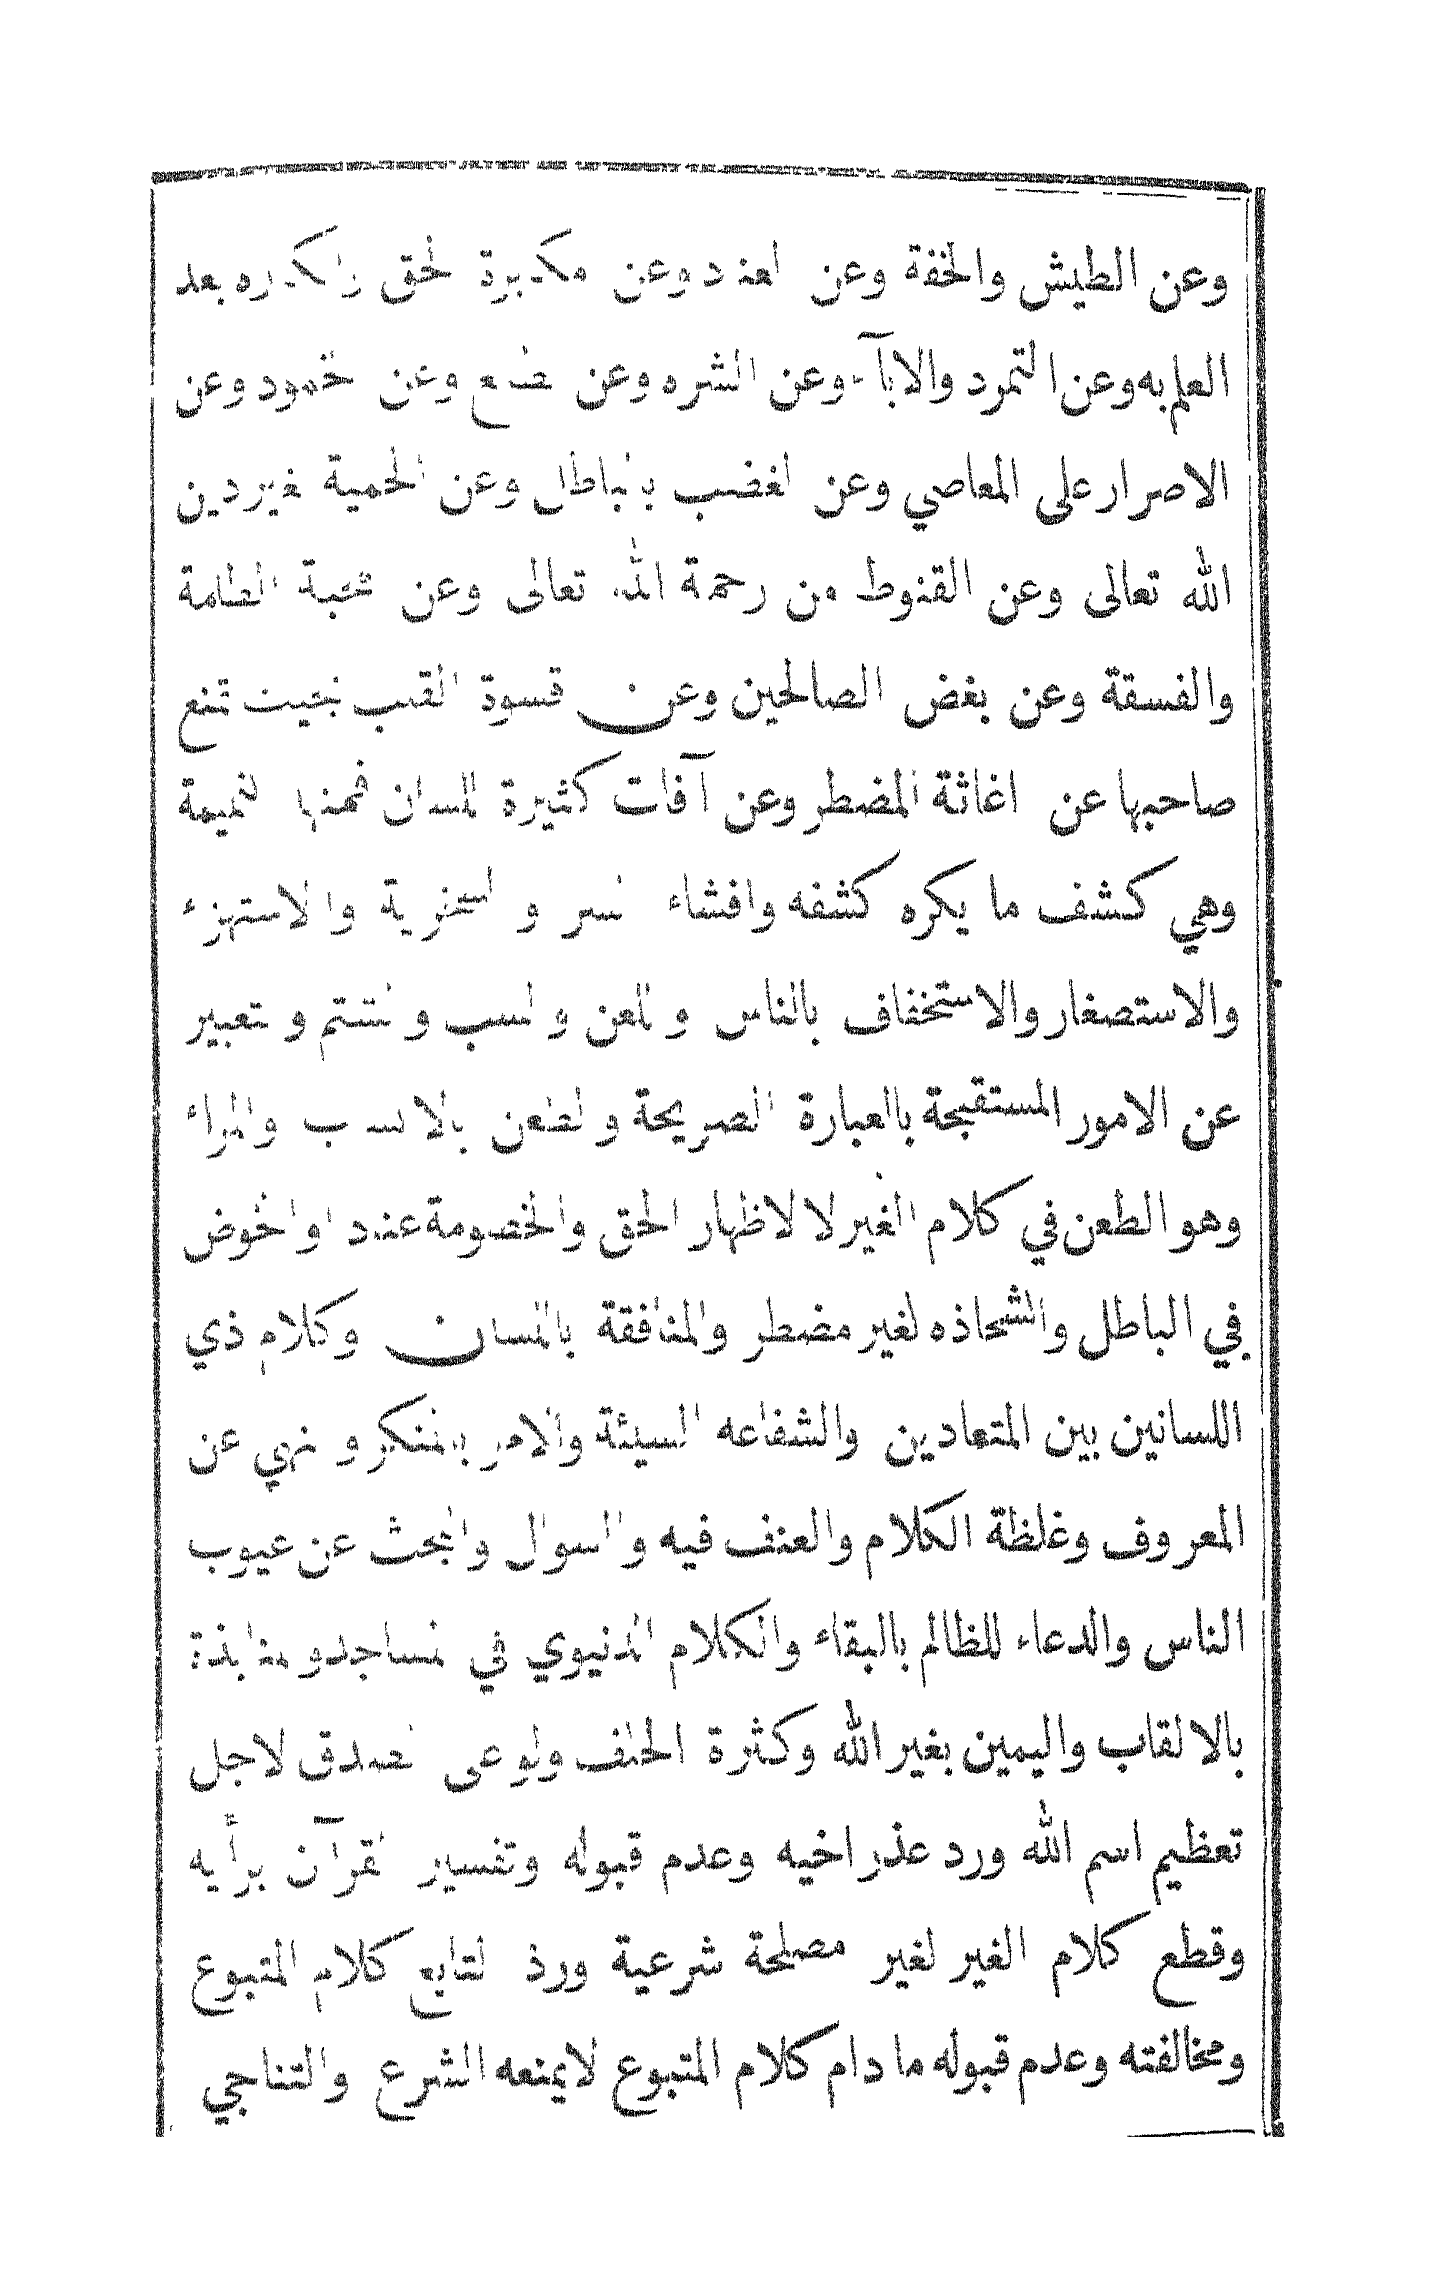 وعن الطيش والخفة وعن العناد وعن مكابرة الحق وانكاره بعد
العلم به وعن التمرد والابآء وعن الشره وعن الطمع وعن الخمود وعن
الاصرار على المعاصي وعن الغضب بالباطل وعن الحمية لغير دين
الله تعالى وعن القنوط من رحمة الله تعالى وعن محبة الظلمة
والفسقة وعن بغض الصالحين وعن قسوة القلب بحيث تمنع
صاحبها عن اغاثة المضطر وعن آفات كثيرة للسان فمنها النميمة
وهي كشف ما يكره كشفه وافشاء السر و السخرية والاستهزء
والاستصغار والاستخفاف بالناس و اللعن و السب و الشتم و التعبير
عن الامور المستقبحة بالعبارة الصريحة و الطعن بالانساب والمراء
وهو الطعن في كلام الغير لا لاظهار الحق والخصومة عنادا والخوض
في الباطل والشحاذه لغير مضطر والمنافقة باللسان وكلام ذي
اللسانين بين المتعادين والشفاعه السيئة والامر بالمنكر و النهي عن
المعروف وغلظة الكلام والعنف فيه والسوال والبحث عن عيوب
الناس والدعاء للظالم بالبقاء والكلام الدنيوي في المساجد و المنابذة
بالالقاب واليمين بغير الله وكثرة الحلف ولو على الصدق لاجل
تعظيم اسم الله ورد عذر اخيه وعدم قبوله وتفسير القرآن برأيه
وقطع كلام الغير لغير مصلحة شرعية ورد التابع كلام المتبوع
ومخالفته وعدم قبوله ما دام كلام المتبوع لا يمنعه الشرع والتناجي